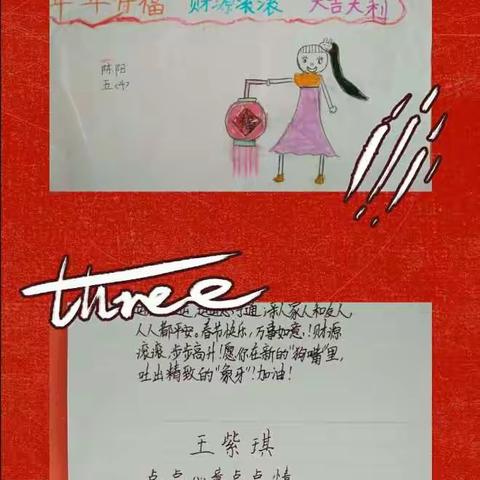 年年有福 财源滚滚 大吉大利
陈阳
五(4)
three
通,亲人家人和友人,
人人都平安。春节快乐,万事如意!财源
滚滚,步步高升!愿你在新的"狗嘴"里,
吐出精致的"象牙"!加油!
王紫琪
点点心意点点情